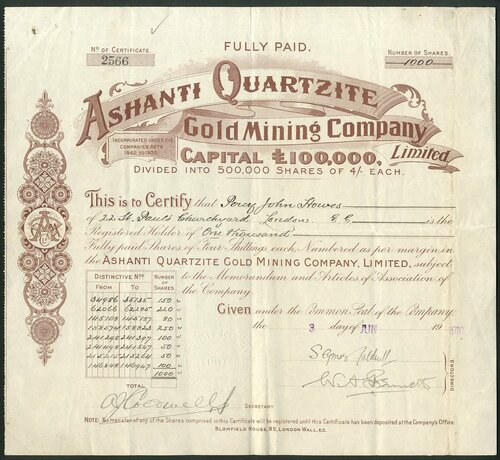 Nº OF CERTIFICATE.
2566
FULLY PAID.
NUMBER OF SHARES.
1000
ASHANTI QUARTZITE
Gold Mining Company
Limited
INCORPORATED UNDER THE
COMPANIES ACTS
1862 TO 1900
CAPITAL £100,000,
DIVIDED INTO 500,000 SHARES OF 4/- EACH.
This is to Certify that Percy John Howes
of 22 St. Pauls Churchyard London E C is the
Registered Holder of One thousand
Fully paid Shares of Four Shillings each, Numbered as per margin in
the ASHANTI QUARTZITE GOLD MINING COMPANY, LIMITED, subject
to the Memorandum and Articles of Association of
the Company.
DISTINCTIVE Nos NUMBER OF SHARES
FROM TO
34986 35135 150
62066 62285 220
80
158574 158823 250
241248 241347 100
241498 241547 50
50
100
1000
TOTAL
Given under the Common Seal of the Company,
the 3 day of JUN 19
DIRECTORS.
SECRETARY.
NOTE: No transfer of any of the Shares comprised in this Certificate will be registered until this Certificate has been deposited at the Company's Office.
BLOMFIELD HOUSE, 85, LONDON WALL, E.C.